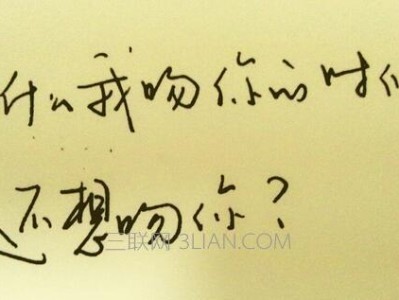 什么我吻你的时
还不想吻你？
三联网 3LIAN.COM